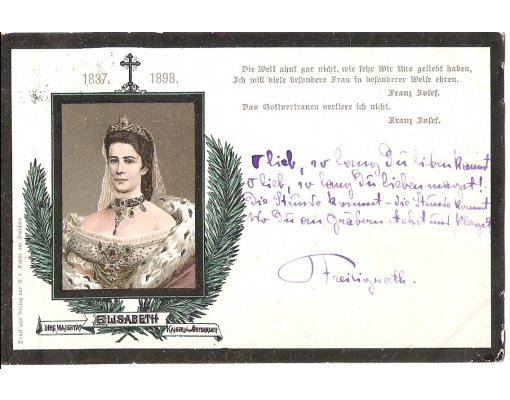 1837. 1898.
Die Welt ahnt gar nicht, wie sehr Wir Uns geliebt haben,
Ich will diese besondere Frau in besonderer Weise ehren.
Franz Josef.
Das Gottvertrauen verliere ich nicht.
Franz Josef.
O lieb, so lang Du lieben kannst
O lieb, so lang Du lieben magst!
Die Stunde kommt - die Stunde kommt
Wo Du an Gräbern stehst und klagst
Freiligrath.
IHRE MAJESTÄT ELISABETH KAISERIN v. ÖSTERREICH
Druck und Verlag der